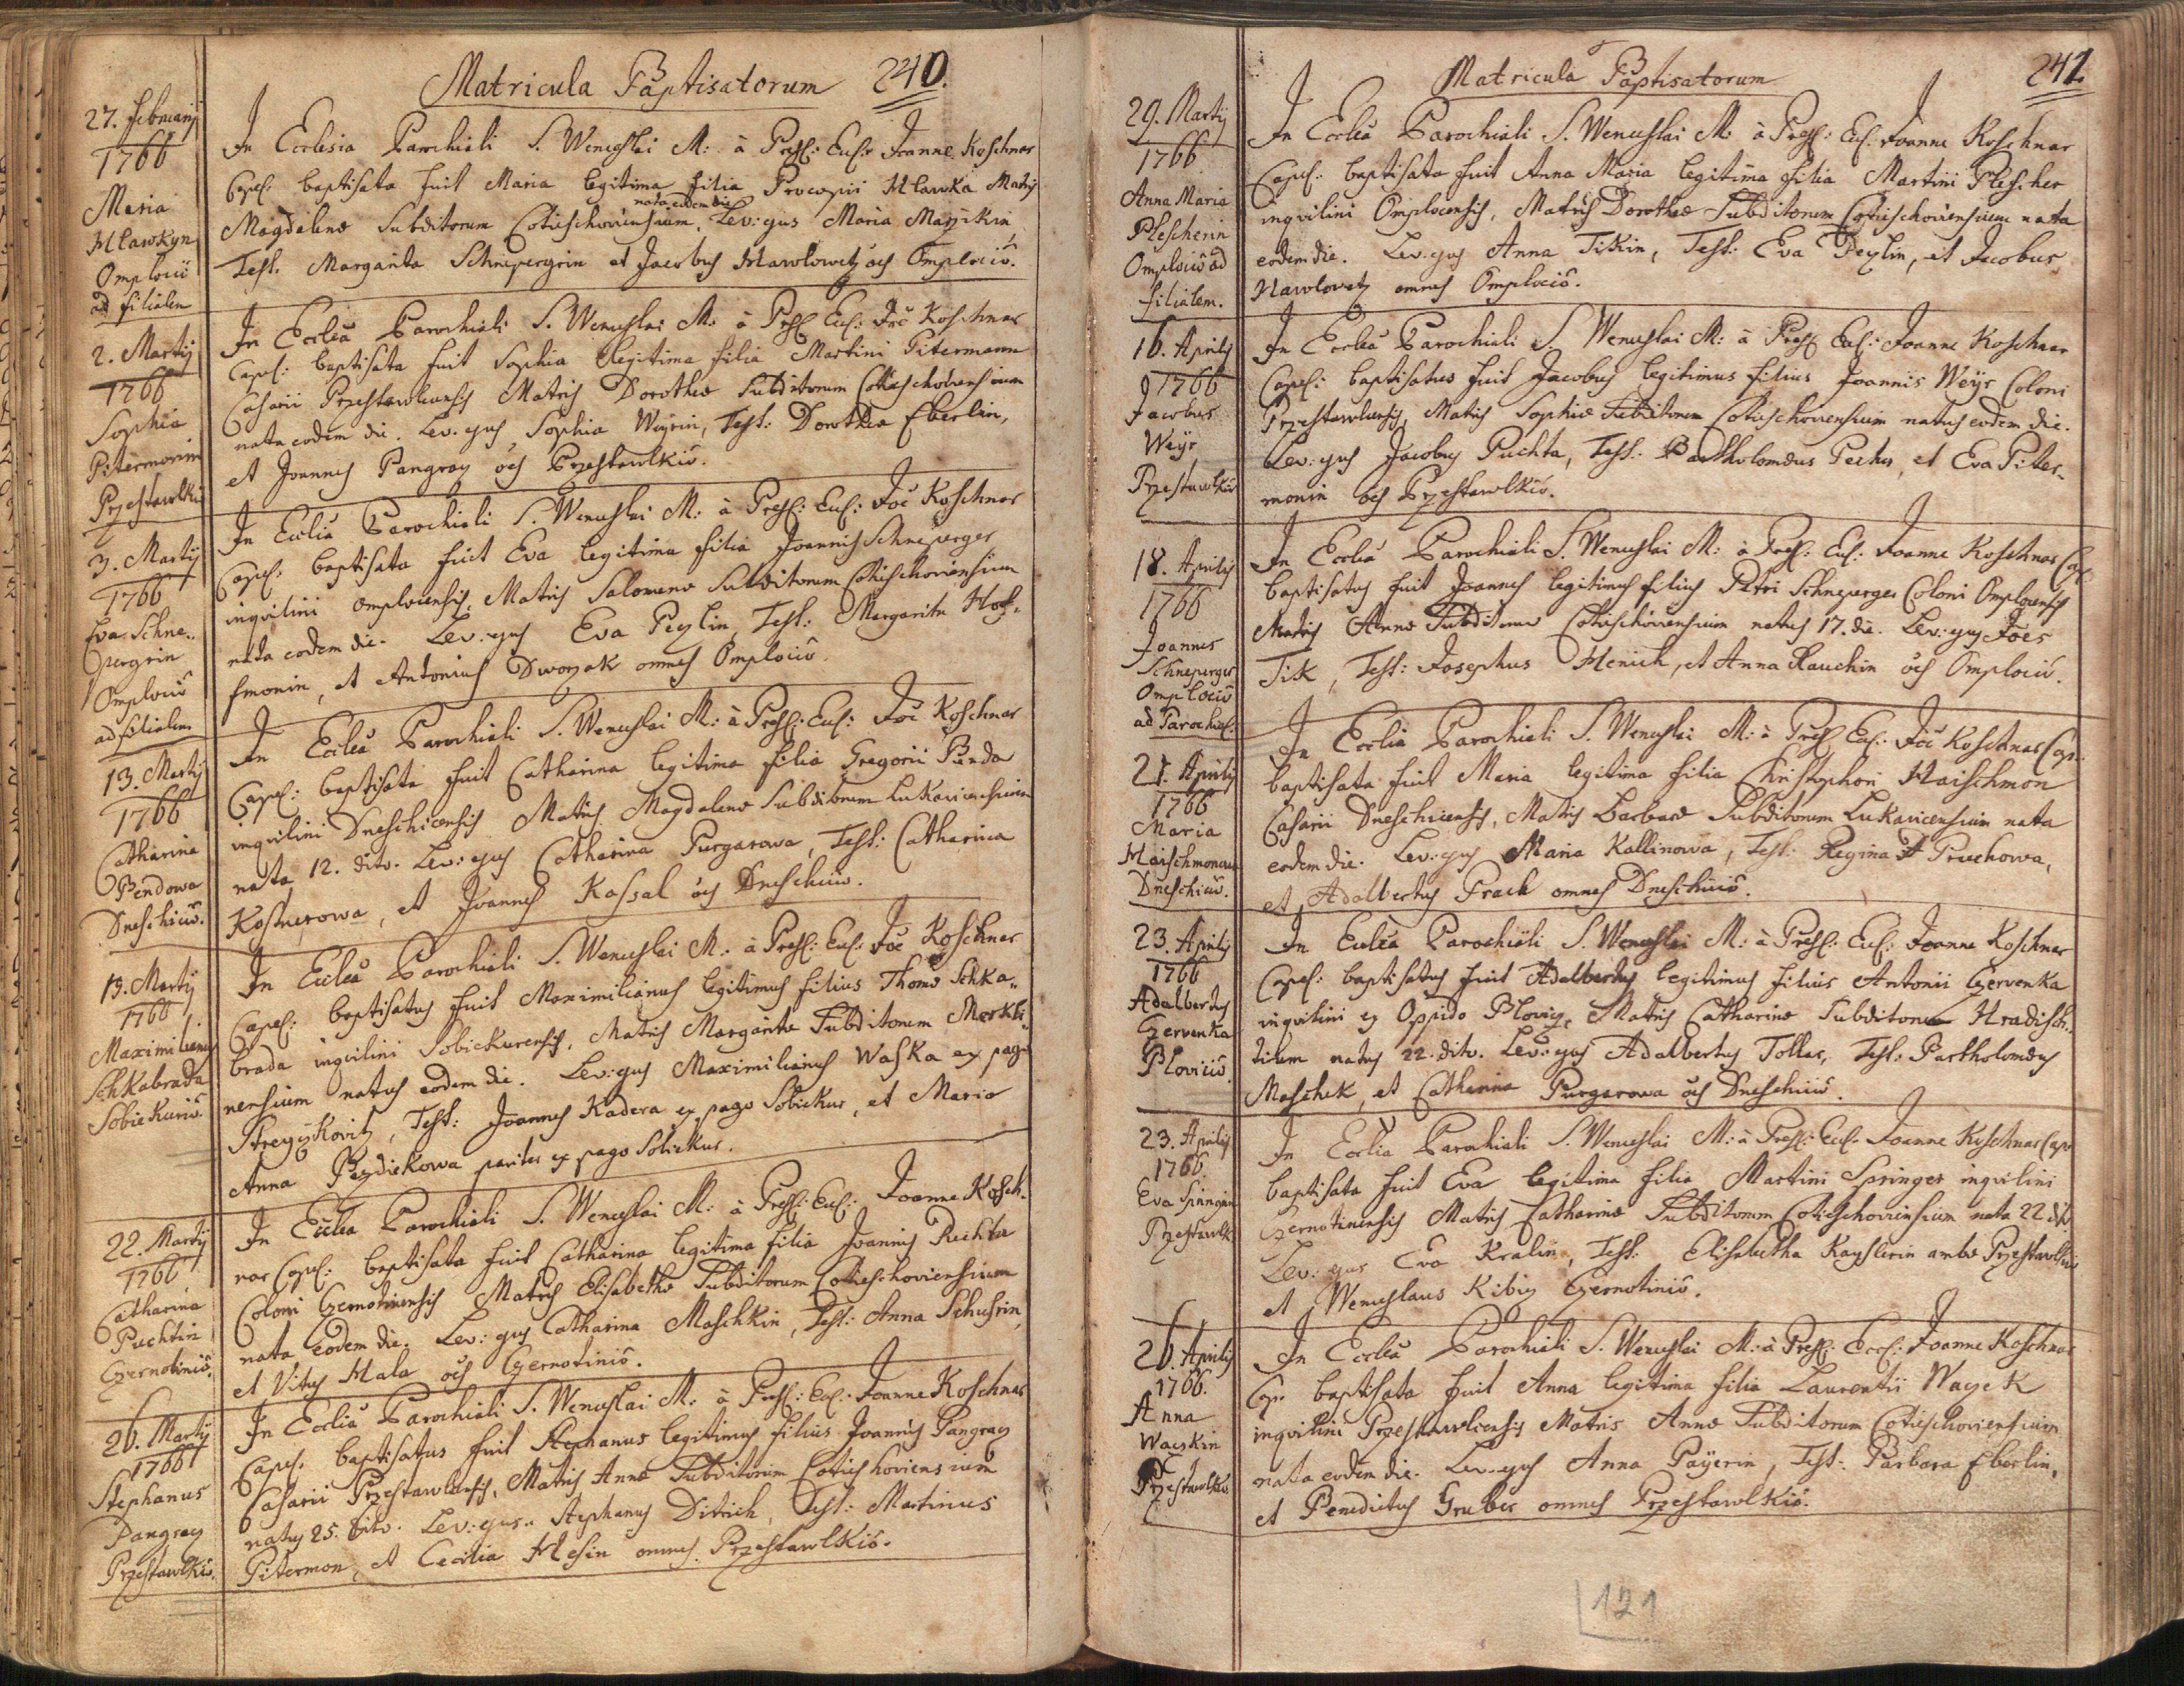 Matricula Baptisatorum 240.
27. Februarij
1766
Maria
Hlawkyn
Omplociî
ad filialem
In Ecclesia Parochiali S. Wenceslai M: à Presb: Eccl: Joanne Koschnar
Capel: baptisata fuit Maria legitima filia Procopii Hlawka Matris
nata eodem die
Magdalenæ Subditorum Cotieschoviensium, Lev: ejus Maria Mazikin
Test. Margarita Schnepergrin et Jacobus Hawlowetz oẽs Omplociî.
2. Martij
1766
Sophia
Pitermonin
Przestawlkiî
In Ecclĩa Parochiali S. Wenceslai M: à Presb Eccl: Joẽ Koschnar
Capel: baptisata fuit Sophia legitima filia Martini Pitermann
Casarii Przestawlcensis Matris Dorotheæ Subditorum Cotieschoviensium
nata eodem die. Lev. ejus Sophia Weyrin, Test: Dorothea Eberlin,
et Joannes Pangraz oẽs Przestawlkiî.
3. Martij
1766
Eva Schne..
pergrin
Omplociî
ad filialem
In Ecclĩa Parochiali S. Wenceslai M: à Presb: Eccl: Joẽ Koschnar
Capel: baptisata fuit Eva legitima filia Joannis Schneperger
inqvilini Omplocensis, Matris Salomenæ Subditorum Cotieschoviensium
nata eodem die. Lev. ejus Eva Pezlin, Test: Margarita Hof-
fmonin, et Antonius Dworzak omnes Omplociî.
13. Martij
1766
Catharina
Bendowa
Dneschiciî.
In Ecclĩa Parochiali S. Wenceslai M: à Presb: Eccl: Joẽ Koschnar
Capel: baptisata fuit Catharina legitima filia Gregorii Benda
inqvilini Dneschicensis Matris Magdalenæ Subditorum Lukavicensium
nata 12. ditto. Lev: ejus Catharina Purgarowa, Test: Catharina
Kostnerowa, et Joannes Kassal oẽs Dneschiciî.
19. Martij
1766
Maximilianus
Schkabrada
Sobiekuriî.
In Ecclĩa Parochiali S. Wenceslai M. à Presb: Eccl: Joẽ Koschnar
Capel: baptisatus fuit Maximilianus legitimus filius Thomæ Schka..
brada inqvilini Sobiekurensis, Matris Margaritæ Subditorum Merkli..
nensium natus eodem die. Lev: ejus Maximilianus Waska ex pago
Strzyzkovitz, Test: Joannes Kadera ex pago Sobiekur, et Maria
Anna Pezdiekowa pariter ex pago Sobiekur.
22. Martij
1766
Catharina
Puchtin
Czernotiniî.
In Ecclĩa Parochiali S. Wenceslai M: à Presb: Eccl: Joanne Kosch-
nar Capel: baptisata fuit Catharina legitima filia Joannis Puchta
Coloni Czernotinensis Matris Elisabethæ Subditorum Cotieschoviensium
nata eodem die. Lev: ejus Catharina Maschkin, Test: Anna Schusrin,
et Vitus Hala oẽs Czernotiniî.
26. Martij
1766
Stephanus
Pangraz
Przestawlkiî.
In Ecclĩa Parochiali S. Wenceslai M: à Presb: Eccl: Joanne Koschnar
Capel. baptisatus fuit Stephanus legitimus filius Joannis Pangraz
Casarii Przestawlcensis, Matris Annæ Subditorum Cotieschoviensium
natus 25. ditto. Lev: ejus. Stephanus Ditrich, Test: Martinus
Pitermon, et Cecilia Hesin omnes Przestawlkiî.
Matricula Baptisatorum 241
29. Martij
1766
Anna Maria
Plescherin
Omplociî ad
filialem.
In Ecclĩa Parochiali S. Wenceslai M: à Presb: Eccl. Joanne Koschnar
Capel: baptisata fuit Anna Maria legitima filia Martini Plescher
inqvilini Omplocensis, Matris Dorotheæ Subditorum Cotieschoviensium nata
eodem die. Lev: ejus Anna Tikin, Test: Eva Pezlin, et Jacobus
Hawlowetz omnes Omplociî.
16. Aprilis
1766
Jacobus
Weyr
Przestawlkiî
In Ecclĩa Parochiali S. Wenceslai M: à Presb Eccl: Joanne Koschnar
Capel: baptisatus fuit Jacobus legitimus filius Joannis Weyr Coloni
Przestawlcensis, Matris Sophiæ Subditorum Cotieschoviensium natus eodem die.
Lev: ejus Jacobus Puchta, Test: Bartholomæus Pecher, et Eva Piter-
monin oẽs Przestawlkiî.
18. Aprilis
1766
Joannes
Schneperger
Omplociî
ad Parochial:
In Ecclĩa Parochiali S. Wenceslai M: à Presb: Eccl: Joanne Koschnar Cap:
baptisatus fuit Joannes legitimus filius Petri Schneperger Coloni Omplocensis
Matris Annæ Subditorum Cotieschoviensium natus 17. die. Lev: ejus Joẽs
Tik, Test: Josephus Henich, et Anna Rauchin oẽs Omplociî.
21. Aprilis
1766
Maria
Haischmonowa
Dneschiciî.
In Ecclĩa Parochiali S. Wenceslai M: à Presb Eccl: Joẽ Koschnar Cap:
baptisata fuit Maria legitima filia Christophori Haischmon
Casarii Dneschicensis, Matris Barbaræ Subditorum Lukavicensium nata
eodem die. Lev: ejus Maria Kallinowa, Test: Regina Pruchowa,
et Adalbertus Prach omnes Dneschiciî.
23. Aprilis
1766
Adalbertus
Czervenka
Bloviciî.
In Ecclĩa Parochiali S. Wenceslai M: à Presb: Eccl: Joanne Koschnar
Capel: baptisatus fuit Adalbertus legitimus filius Antonii Czervenka
inqvilini ex Oppido Blovicz, Matris Catharinæ Subditorum Hradisch-
tidum natus 22. ditto. Lev: ejus Adalbertus Tollar, Test: Bartholomæus
Maschek, et Catharina Purgarowa oẽs Dneschiciî.
23. Aprilis
1766
Eva Springrin
Przestawlk
In Ecclĩa Parochiali S. Wenceslai M: à Presb: Eccl: Joanne Koschnar Cape
baptisata fuit Eva legitima filia Martini Springer inqvilini
Czernotinensis Matris Catharinæ Subditorum Cotieschoviensium nata 22 dito
Lev: ejus Eva Kralin, Test: Elisabetha Kayslerin ambæ Przestawlkiî
et Wenceslaus Kibiz Czernotiniî.
26. Aprilis
1766.
Anna
Wayskin
Przestawlkiî
In Ecclĩa Parochiali S. Wenceslai M: à Presb: Eccl: Joanne Koschnar
Cap: baptisata fuit Anna legitima filia Laurentii Wayek
inqvilini Przestawlcensis Matris Annæ Subditorum Cotieschoviensium
nata eodem die. Lev. ejus Anna Payerin, Test: Barbara Eberlin,
et Benedictus Gruber omnes Przestawlkiî.
121